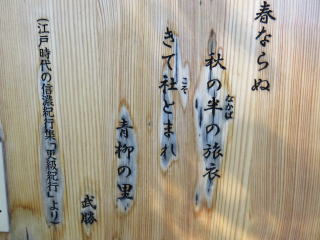 春ならぬ
秋の半の旅衣
なかば
きて社とまれ
こそ
青柳の里
武勝
(江戸時代の信濃紀行集「更級紀行」より)